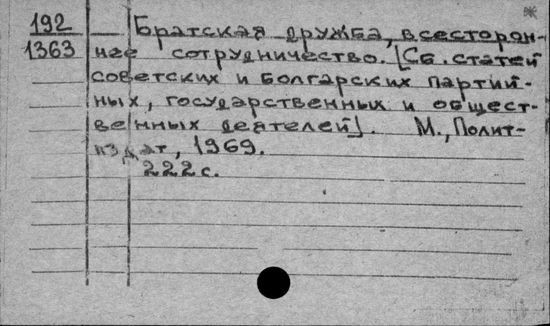 192
1363
Братская дружба, всесторон-
нее сотрудничество. [Сб. статей
советских и болгарских партий-
ных, государственных и общест-
венных деятелей]. М., Полит-
издат, 1969.
222 с.